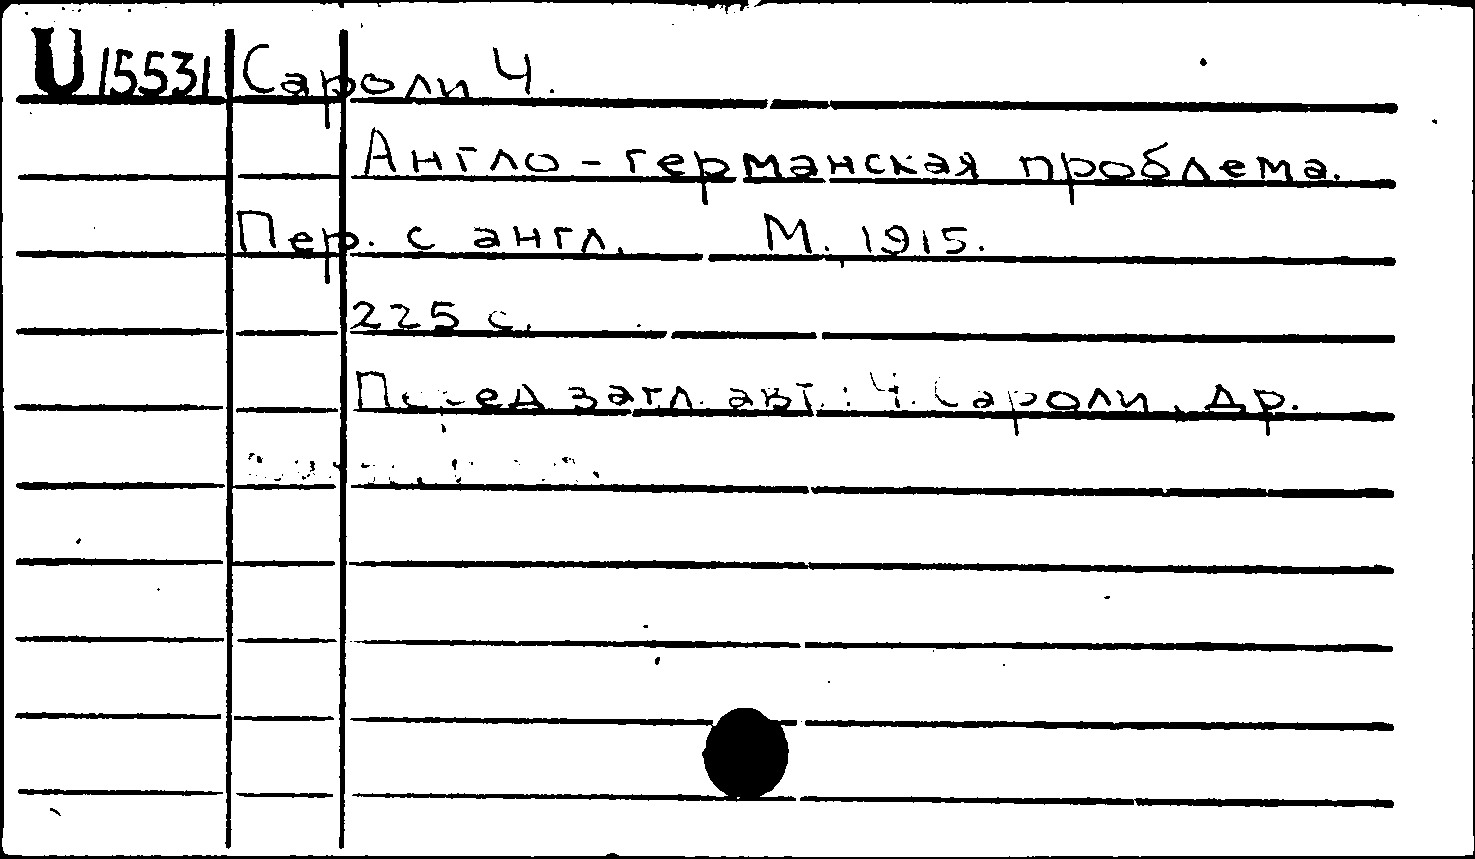 U 15531 Сароли Ч.
Англо-германская проблема.
Пер. с англ. М., 1915.
225 с.
Перед загл. авт.: Ч. Сароли, др.